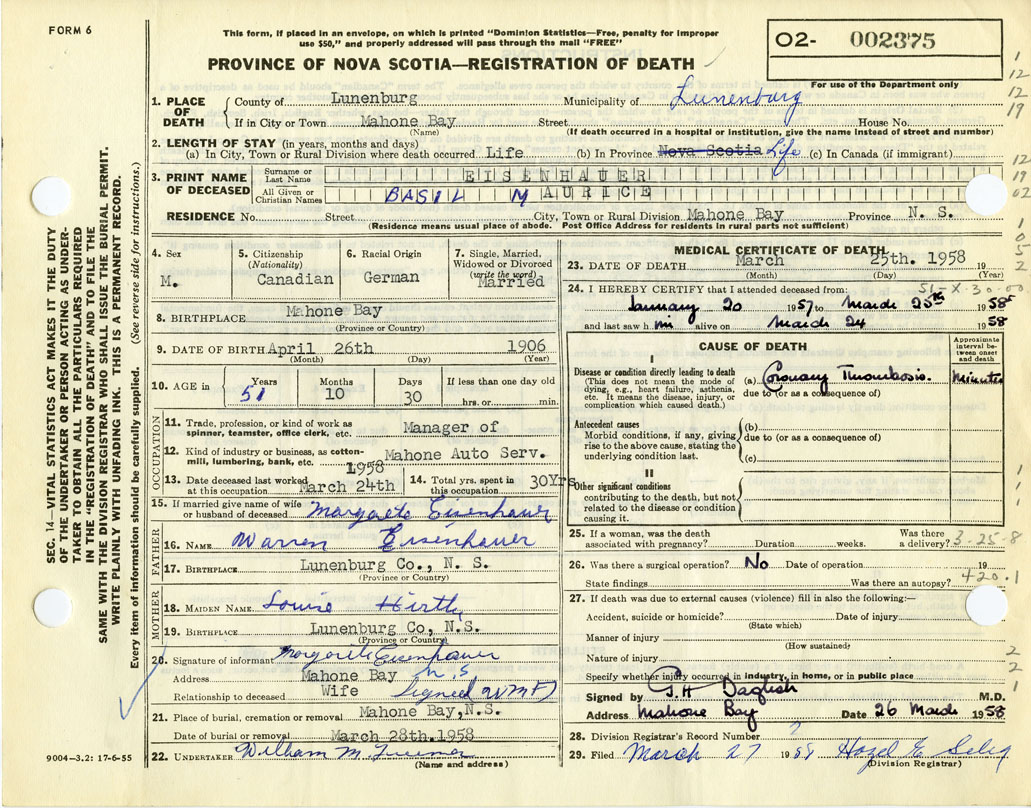 FORM 6
This form, if placed in an envelope, on which is printed "Dominion Statistics—Free, penalty for improper
use $50," and properly addressed will pass through the mail "FREE"
PROVINCE OF NOVA SCOTIA—REGISTRATION OF DEATH
O2- 002375
For use of the Department only
1. PLACE OF DEATH
County of Lunenburg Municipality of Lunenburg
If in City or Town Mahone Bay Street House No.
(Name) (If death occurred in a hospital or institution, give the name instead of street and number)
2. LENGTH OF STAY (in years, months and days)
(a) In City, Town or Rural Division where death occurred Life (b) In Province Nova Scotia Life (c) In Canada (if immigrant)
3. PRINT NAME OF DECEASED
Surname or Last Name EISENHAUER
All Given or Christian Names BASIL MAURICE
RESIDENCE No. Street City, Town or Rural Division Mahone Bay Province N. S.
(Residence means usual place of abode. Post Office Address for residents in rural parts not sufficient)
4. Sex M.
5. Citizenship (Nationality) Canadian
6. Racial Origin German
7. Single, Married, Widowed or Divorced (write the word) Married
8. BIRTHPLACE Mahone Bay
(Province or Country)
9. DATE OF BIRTH April 26th 1906
(Month) (Day) (Year)
10. AGE in Years Months Days If less than one day old
51 10 30 hrs. or min.
OCCUPATION
11. Trade, profession, or kind of work as spinner, teamster, office clerk, etc. Manager of
12. Kind of industry or business, as cotton-mill, lumbering, bank, etc. Mahone Auto Serv.
13. Date deceased last worked at this occupation March 24th 1958
14. Total yrs. spent in this occupation 30Yrs
15. If married give name of wife or husband of deceased Margarete Eisenhauer
FATHER
16. NAME Warren Eisenhauer
17. BIRTHPLACE Lunenburg Co., N. S.
(Province or Country)
MOTHER
18. MAIDEN NAME Louise Hirtle
19. BIRTHPLACE Lunenburg Co, N.S.
(Province or Country)
20. Signature of informant Margarete Eisenhauer
Address Mahone Bay N.S
Relationship to deceased Wife Signed WMF
21. Place of burial, cremation or removal Mahone Bay, N.S.
Date of burial or removal March 28th.1958
22. UNDERTAKER William M.
(Name and address)
9004—3.2: 17-6-55
MEDICAL CERTIFICATE OF DEATH
23. DATE OF DEATH March 25th. 1958 19
(Month) (Day) (Year)
51-X-30-00
24. I HEREBY CERTIFY that I attended deceased from:
January 20 1957 to March 25th 1958
and last saw him alive on March 24 1958
CAUSE OF DEATH
Approximate interval between onset and death
I
Disease or condition directly leading to death
(This does not mean the mode of dying, e.g., heart failure, asthenia, etc. It means the disease, injury, or complication which caused death.)
(a) Coronary Thrombosis. Minutes
due to (or as a consequence of)
Antecedent causes
Morbid conditions, if any, giving rise to the above cause, stating the underlying condition last.
(b)
due to (or as a consequence of)
(c)
II
Other significant conditions
contributing to the death, but not related to the disease or condition causing it.
25. If a woman, was the death associated with pregnancy? Duration weeks. Was there a delivery? 3-25-8
26. Was there a surgical operation? No Date of operation 19
State findings Was there an autopsy? 420.1
27. If death was due to external causes (violence) fill in also the following:—
Accident, suicide or homicide? Date of injury
(State which)
Manner of injury
(How sustained)
Nature of injury
Specify whether injury occurred in industry, in home, or in public place
Signed by J.H Daglish M.D.
Address Mahone Bay Date 26 March 1958
28. Division Registrar's Record Number
29. Filed March 27 1958 Hazel E. Selig
(Division Registrar)
SEC. 14—VITAL STATISTICS ACT MAKES IT THE DUTY
OF THE UNDERTAKER OR PERSON ACTING AS UNDER-
TAKER TO OBTAIN ALL THE PARTICULARS REQUIRED
IN THE "REGISTRATION OF DEATH" AND TO FILE THE
SAME WITH THE DIVISION REGISTRAR WHO SHALL ISSUE THE BURIAL PERMIT.
WRITE PLAINLY WITH UNFADING INK. THIS IS A PERMANENT RECORD.
Every item of information should be carefully supplied. (See reverse side for instructions.)
1
12
12
19
12
19
07
1
0
5
2
1
1
1
2
2
1